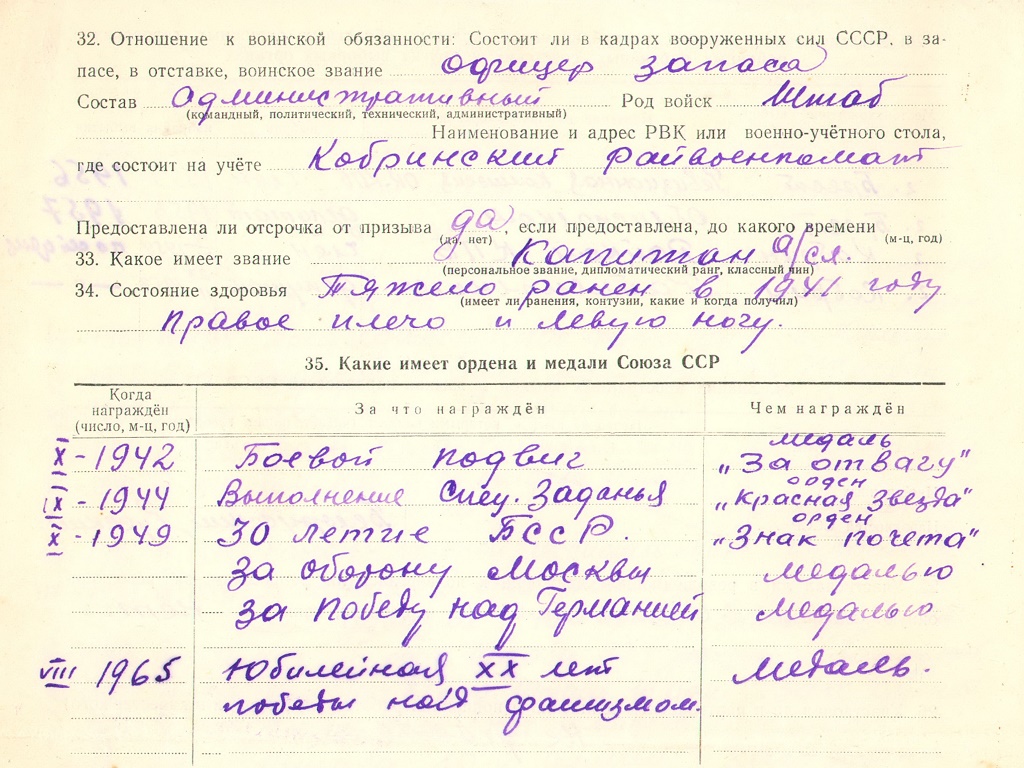 32. Отношение к воинской обязанности: Состоит ли в кадрах вооруженных сил СССР, в за-
пасе, в отставке, воинское звание офицер запаса
Состав Административный Род войск Штаб
(командный, политический, технический, административный)
Наименование и адрес РВК или военно-учётного стола,
где состоит на учёте Кобринский райвоенкомат
Предоставлена ли отсрочка от призыва да, если предоставлена, до какого времени
(да, нет) (м-ц, год)
33. Какое имеет звание Капитан а/сл.
(персональное звание, дипломатический ранг, классный чин)
34. Состояние здоровья Тяжело ранен в 1941 году
(имеет ли ранения, контузии, какие и когда получил)
правое плечо и левую ногу.
35. Какие имеет ордена и медали Союза ССР
Когда награждён (число, м-ц, год) За что награждён Чем награждён
медаль
X - 1942 Боевой подвиг „За отвагу"
орден
IX - 1944 Выполнение Спец. Заданья „Красная Звезда"
орден
X - 1949 30 летие БССР. „Знак почета"
За оборону Москвы медалью
За Победу над Германией медалью
VIII 1965 Юбилейная XX лет медаль.
победы над фашизмом.